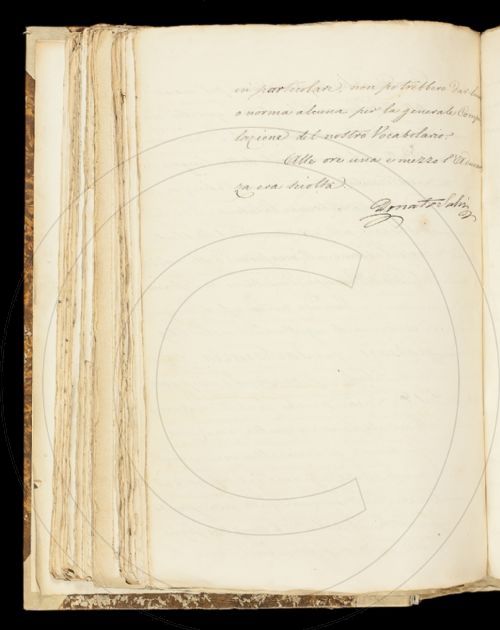 in particolare, non potrebbero dar lume
o norma alcuna per la generale Compi
lazione del nostro Vocabolario.
Alle ore una e mezzo l'Adunan
za era sciolta.
Donato Salvi